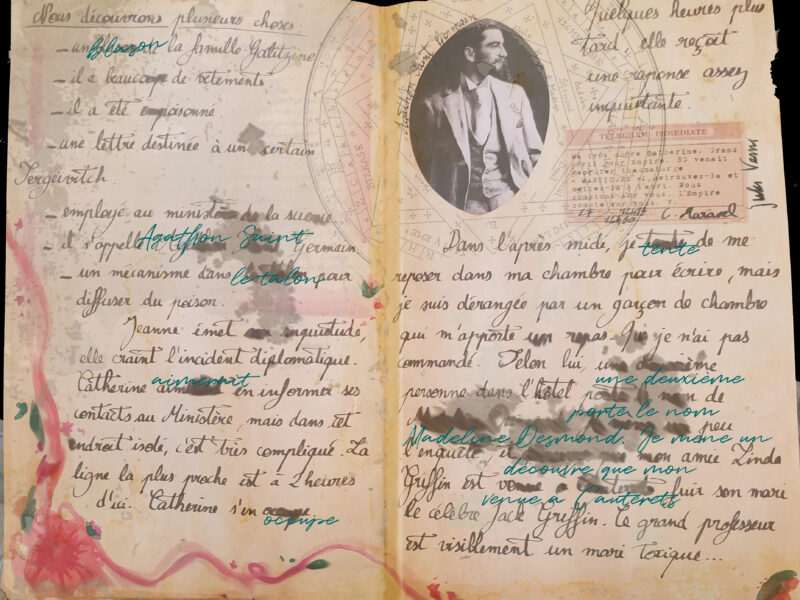 Nous découvrons plusieurs choses
- un Blason la famille Galitzine
- il a beaucoup de vêtements
- il a été empoisonné
- une lettre destinée à un certain
Sergeivitch
- employé au ministère de la
- il s'appelle Agathon Saint Germain
- un mécanisme dans le talon pour
diffuser du poison.
Jeanne émet son inquiétude,
elle craint l'incident diplomatique.
Catherine aimerait en informer ses
contacts au Ministère, mais dans cet
endroit isolé, c'est très compliqué. La
ligne la plus proche est à 2 heures
d'ici. Catherine s'en occupe
Agathon Saint Germain
Quelques heures plus
tard, elle reçoit
une réponse assez
inquiétante.
TELEGRAM IMMEDIATE
Ma très chère Catherine. Grand
péril pour Empire. SG venait
recruter thaumaturge
retrouvez-la et
mettez-la à l'abri. Nous
comptons sur vous. L'Empire
compte sur vous. V.
Jules Verne
Dans l'après midi, je tente de me
reposer dans ma chambre pour écrire, mais
je suis dérangée par un garçon de chambre
qui m'apporte un repas que je n'ai pas
commandé. Selon lui, une deuxième
personne dans l'hôtel porte le nom de
Madeline Desmond. Je mène un peu
l'enquête, et découvre que mon amie Linda
Griffin est venue à Cauterets fuir son mari
le célèbre Jack Griffin. Ce grand professeur
est visiblement un mari toxique...